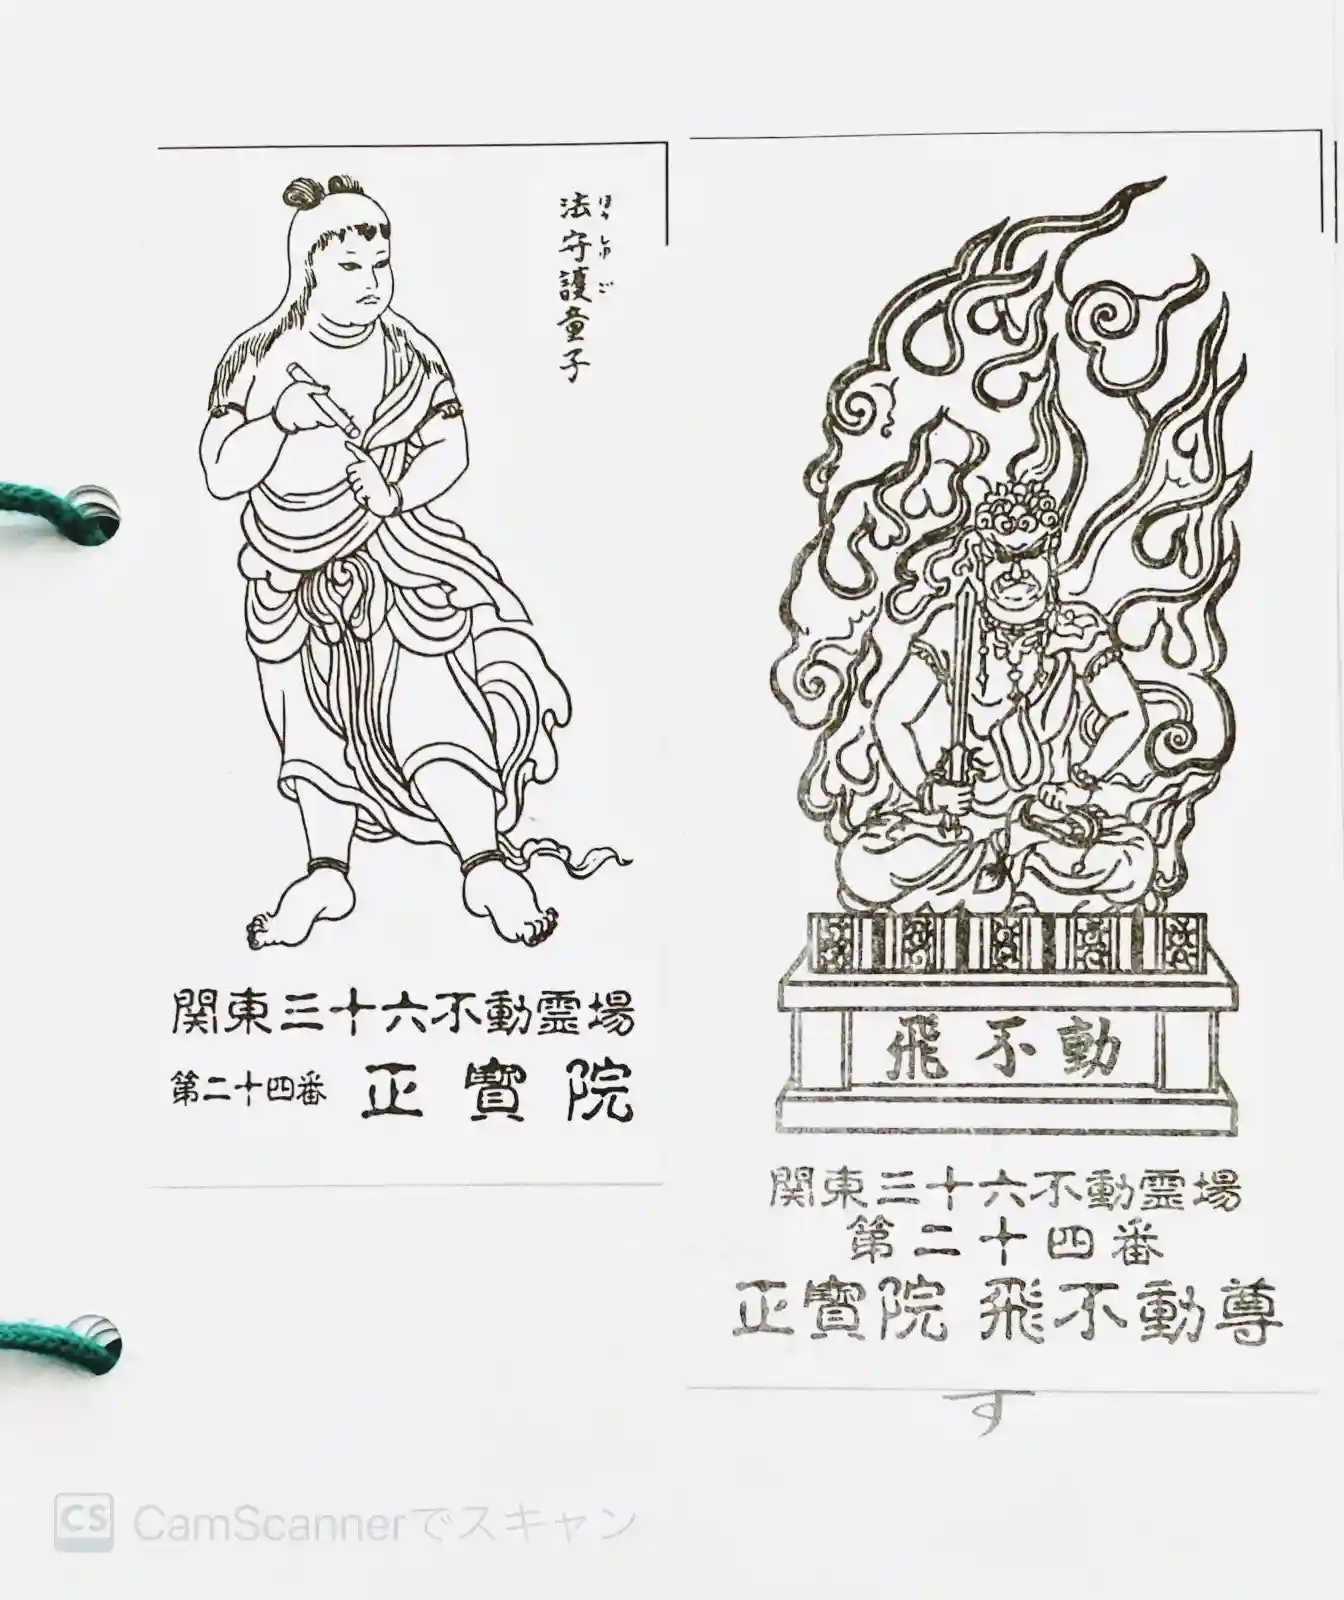 法守護童子
ほう しゅ ご
関東三十六不動霊場
第二十四番 正寳院
飛不動
関東三十六不動霊場
第二十四番
正寳院 飛不動尊
す
CS CamScannerでスキャン